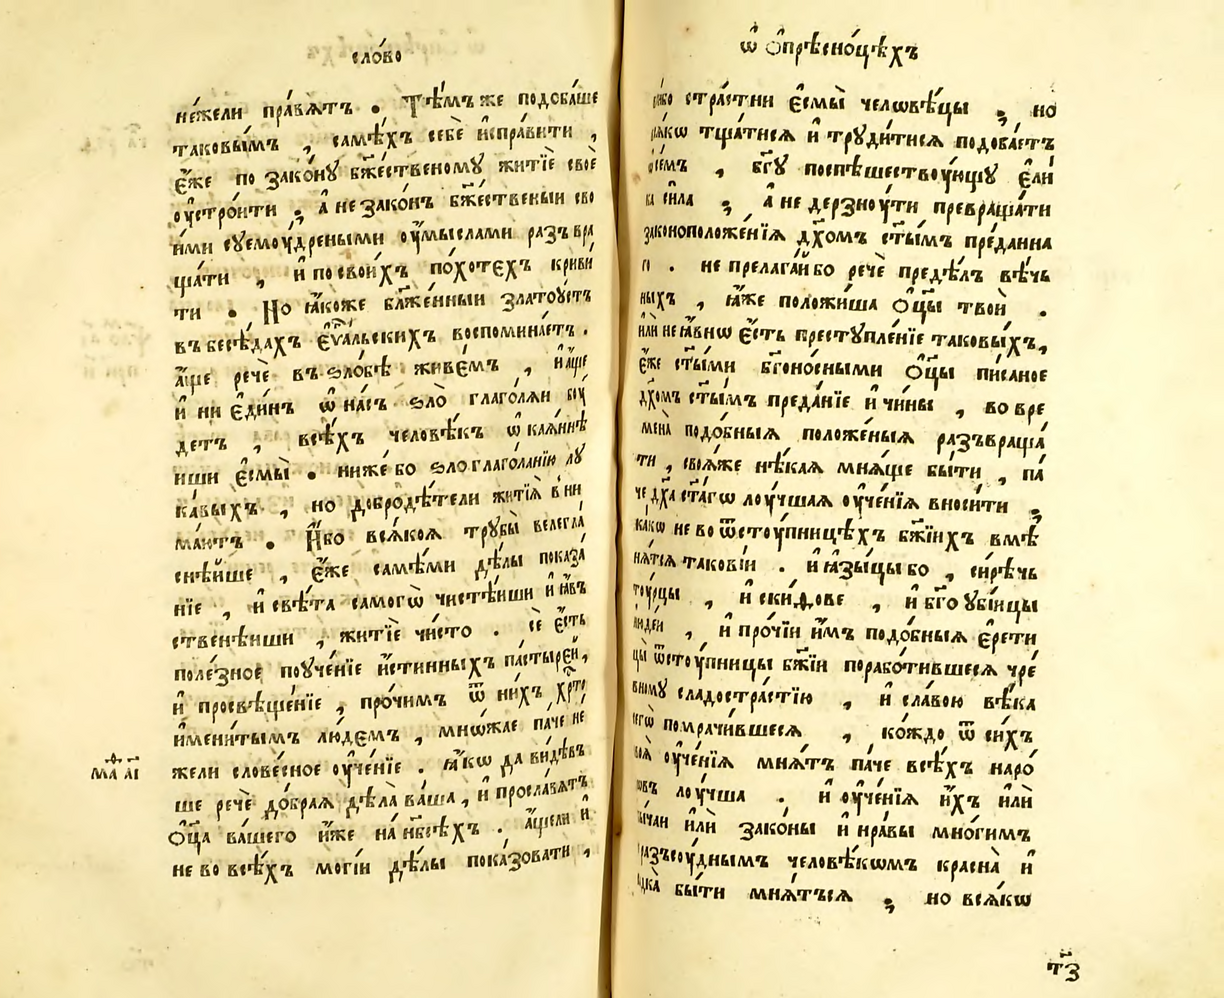 сло́во
не́жели пра́вѧтъ . Тѣ́мъже подоба́ше
таковы́мъ , самѣ́хъ себѐ и҆спра́вити ,
є҆́же по зако́нꙋ бж҃е́ственомꙋ житїѐ своѐ
оу҆стро́ити ; а҆ не зако́нъ бж҃е́ственыи сво
и́ми сꙋемоу́дреными оу҆́мыслами разъвра
ща́ти , и҆ по свои́хъ по́хотехъ криви́
ти . Но ꙗ҆́коже бл҃же́нныи златоу́стъ
въ бесѣ́дахъ є҆ѵⷢ҇а́льскихъ воспомина́етъ .
а҆́ще речѐ въ ѕло́бѣ живе́мъ , и҆ а҆́ще
и҆ ни є҆ди́нъ ѿ на́съ ѕло̀ глаго́лѧи бꙋ́
детъ , всѣ́хъ человѣ́къ ѡ҆каѧ́ннѣ
иши є҆смы̀ . ниже́ бо ѕло глаго́ланїю лꙋ
ка́выхъ , но добродѣ́тели житїѧ̀ вни
ма́ютъ . И҆́бо всѧ́коѧ трꙋбы̀ велегла́
снѣ́йше , є҆́же самѣ́ми дѣ́лы показа́
нїе , и҆ свѣ́та самогѡ̀ чистѣ́иши и҆ ꙗ҆́въ
ственѣ́иши , житїѐ чи́сто . сѐ є҆́сть
поле́зное поꙋче́нїе и҆́стинныхъ па́стырей ,
и҆ просвѣще́нїе , про́чимъ ѿ ни́хъ хрⷭ҇то
и҆мени́тымъ лю́демъ , мно́жае па́че не́
жели слове́сное оу҆че́нїе . ꙗ҆́кѡ да ви́дѣвъ
ше речѐ до́браѧ дѣла̀ ва́ша , и҆ просла́вѧтъ
ѻ҆ц҃а̀ ва́шего и҆́же на нб҃сѣ́хъ . а҆́щели и҆
не во всѣ́хъ могі́и дѣ́лы пока́зовати ,
ма аі
ѡ҆ ѻ҆прѣсно́цѣхъ
стра́стни є҆смы̀ человѣ́цы ; но
тща́тисѧ и҆ трꙋди́тисѧ подоба́етъ
бг҃ꙋ поспѣшествоꙋ́ющꙋ є҆ли́
ка си́ла ; а҆ не дерзноу́ти превраща́ти
законоположе́нїѧ дх҃омъ ст҃ы́мъ пре́данна
го . не прелага́й бо речѐ предѣ́лъ вѣ́чь
ныхъ , ꙗ҆́же положи́ша ѻ҆ц҃ы̀ твоѝ .
и҆лѝ не ꙗ҆́внѡ є҆́сть престꙋпле́нїе таковы́хъ ,
є҆́же ст҃ы́ми бг҃оно́сными ѻ҆ц҃ы̀ пи́саное
дх҃омъ ст҃ы́мъ преда́нїе и҆ чи́ны , во вре
мена̀ подо́бныѧ положе́ныѧ разъвраща́
ти , своѧ́же нѣ́каѧ мнѧ́ще бы́ти , па́
че дх҃а ст҃а́гѡ лоу́чшаѧ оу҆че́нїѧ вноси́ти ;
ка́кѡ не во ѿстоу́пницѣхъ бж҃їихъ вмѣ
нѧ́тсѧ такові́и . и҆ ꙗ҆зы́цы бо , си́рѣчь
тоу́рцы , и҆ ски́ѳове , и҆ бг҃оꙋбі́йцы
іꙋде́и , и҆ про́чїи и҆̀мъ подо́бныѧ є҆рети
цы̀ ѿстоу́пницы бж҃їи порабо́тившесѧ чре́
вномꙋ сладостра́стїю , и҆ сла́вою вѣ́ка
сегѡ̀ помрачи́вшесѧ , ко́ждо ѿ си́хъ
своѧ̀ оу҆че́нїѧ мнѧ́тъ па́че всѣ́хъ наро́
довъ лоу́чша . и҆ оу҆че́нїѧ и҆́хъ и҆лѝ
ѡбы́чаи и҆лѝ зако́ны и҆ нра́вы мно́гимъ
неразъсоу́днымъ человѣ́кѡмъ красна̀ и҆
сладка̀ бы́ти мнѧ́тъсѧ ; но всѧ́кѡ
тз҃